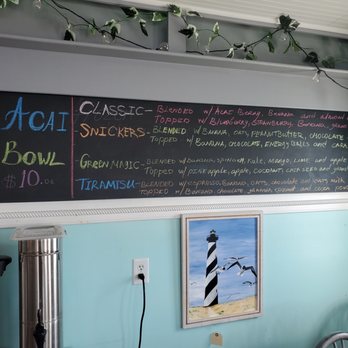 ACAI
BOWL
$10.00
CLASSIC- BLENDED W/ ACAI BERRY, BANANA and almond
TOPPED W/ BLUEBERRY, STRAWBERRY, BANANA,
SNICKERS- BLENDED W/ BANANA, OATS, PEANUT BUTTER, CHOCOLATE
TOPPED W/ BANANA, CHOCOLATE, ENERGY BALLS AND CARA
GREEN MAGIC- BLENDED W/ BANANA, SPINACH, KALE, MANGO, LIME, and apple
TOPPED W/ PINEAPPLE, apple, COCONUT, CHIA SEED and
TIRAMISU- BLENDED W/ ESPRESSO, BANANA, OATS, CHOCOLATE and OATS MILK
TOPPED W/ BANANA, CHOCOLATE, and